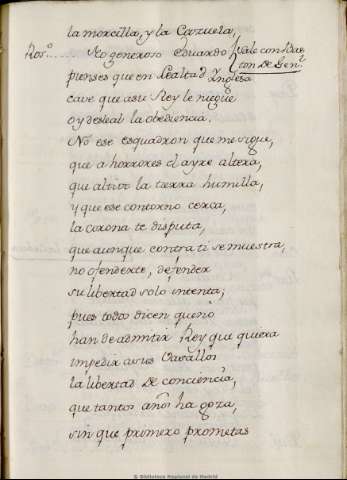 la morcilla, y la Cazuela,
Ros.o No generoso Eduardo Sale con Bas
pienses que en Lealtad Ynglesa ton De Gen.l
cave que a su Rey le niegue
oy desleal la obediencia.
No ese esquadron que me sigue,
que a horrores el ayre altera,
que altivo la tierra humilla,
y que ese contorno cerca,
la corona te disputa,
que aunque contra ti se muestra,
no ofenderte, defender
su libertad solo intenta;
pues todos dicen que no
han de admitir Rey que quiera
impedir a sus Vasallos
la libertad De conciencia,
que tantos años ha goza,
sin que primero prometas
© Biblioteca Nacional de Madrid